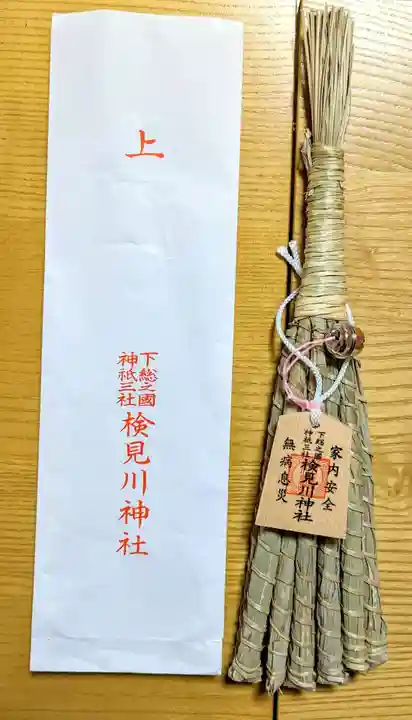 上
下総之國
神祇三社
検見川神社
家内安全
下総之國
神祇三社
検見川神社
無病息災